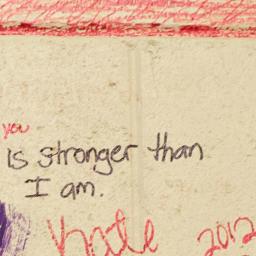 you
is stronger than
I am.
Kate 2012